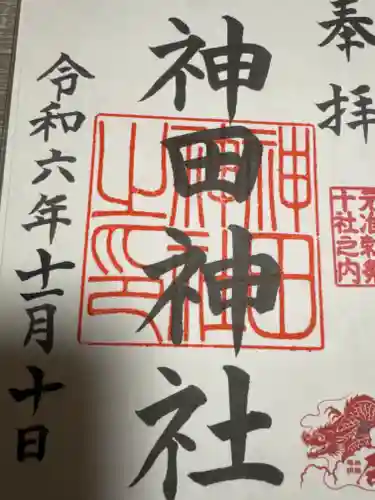 奉拝
元准勅祭
十社之内
神田神社
神田
神社
之印
令和六年十一月十日